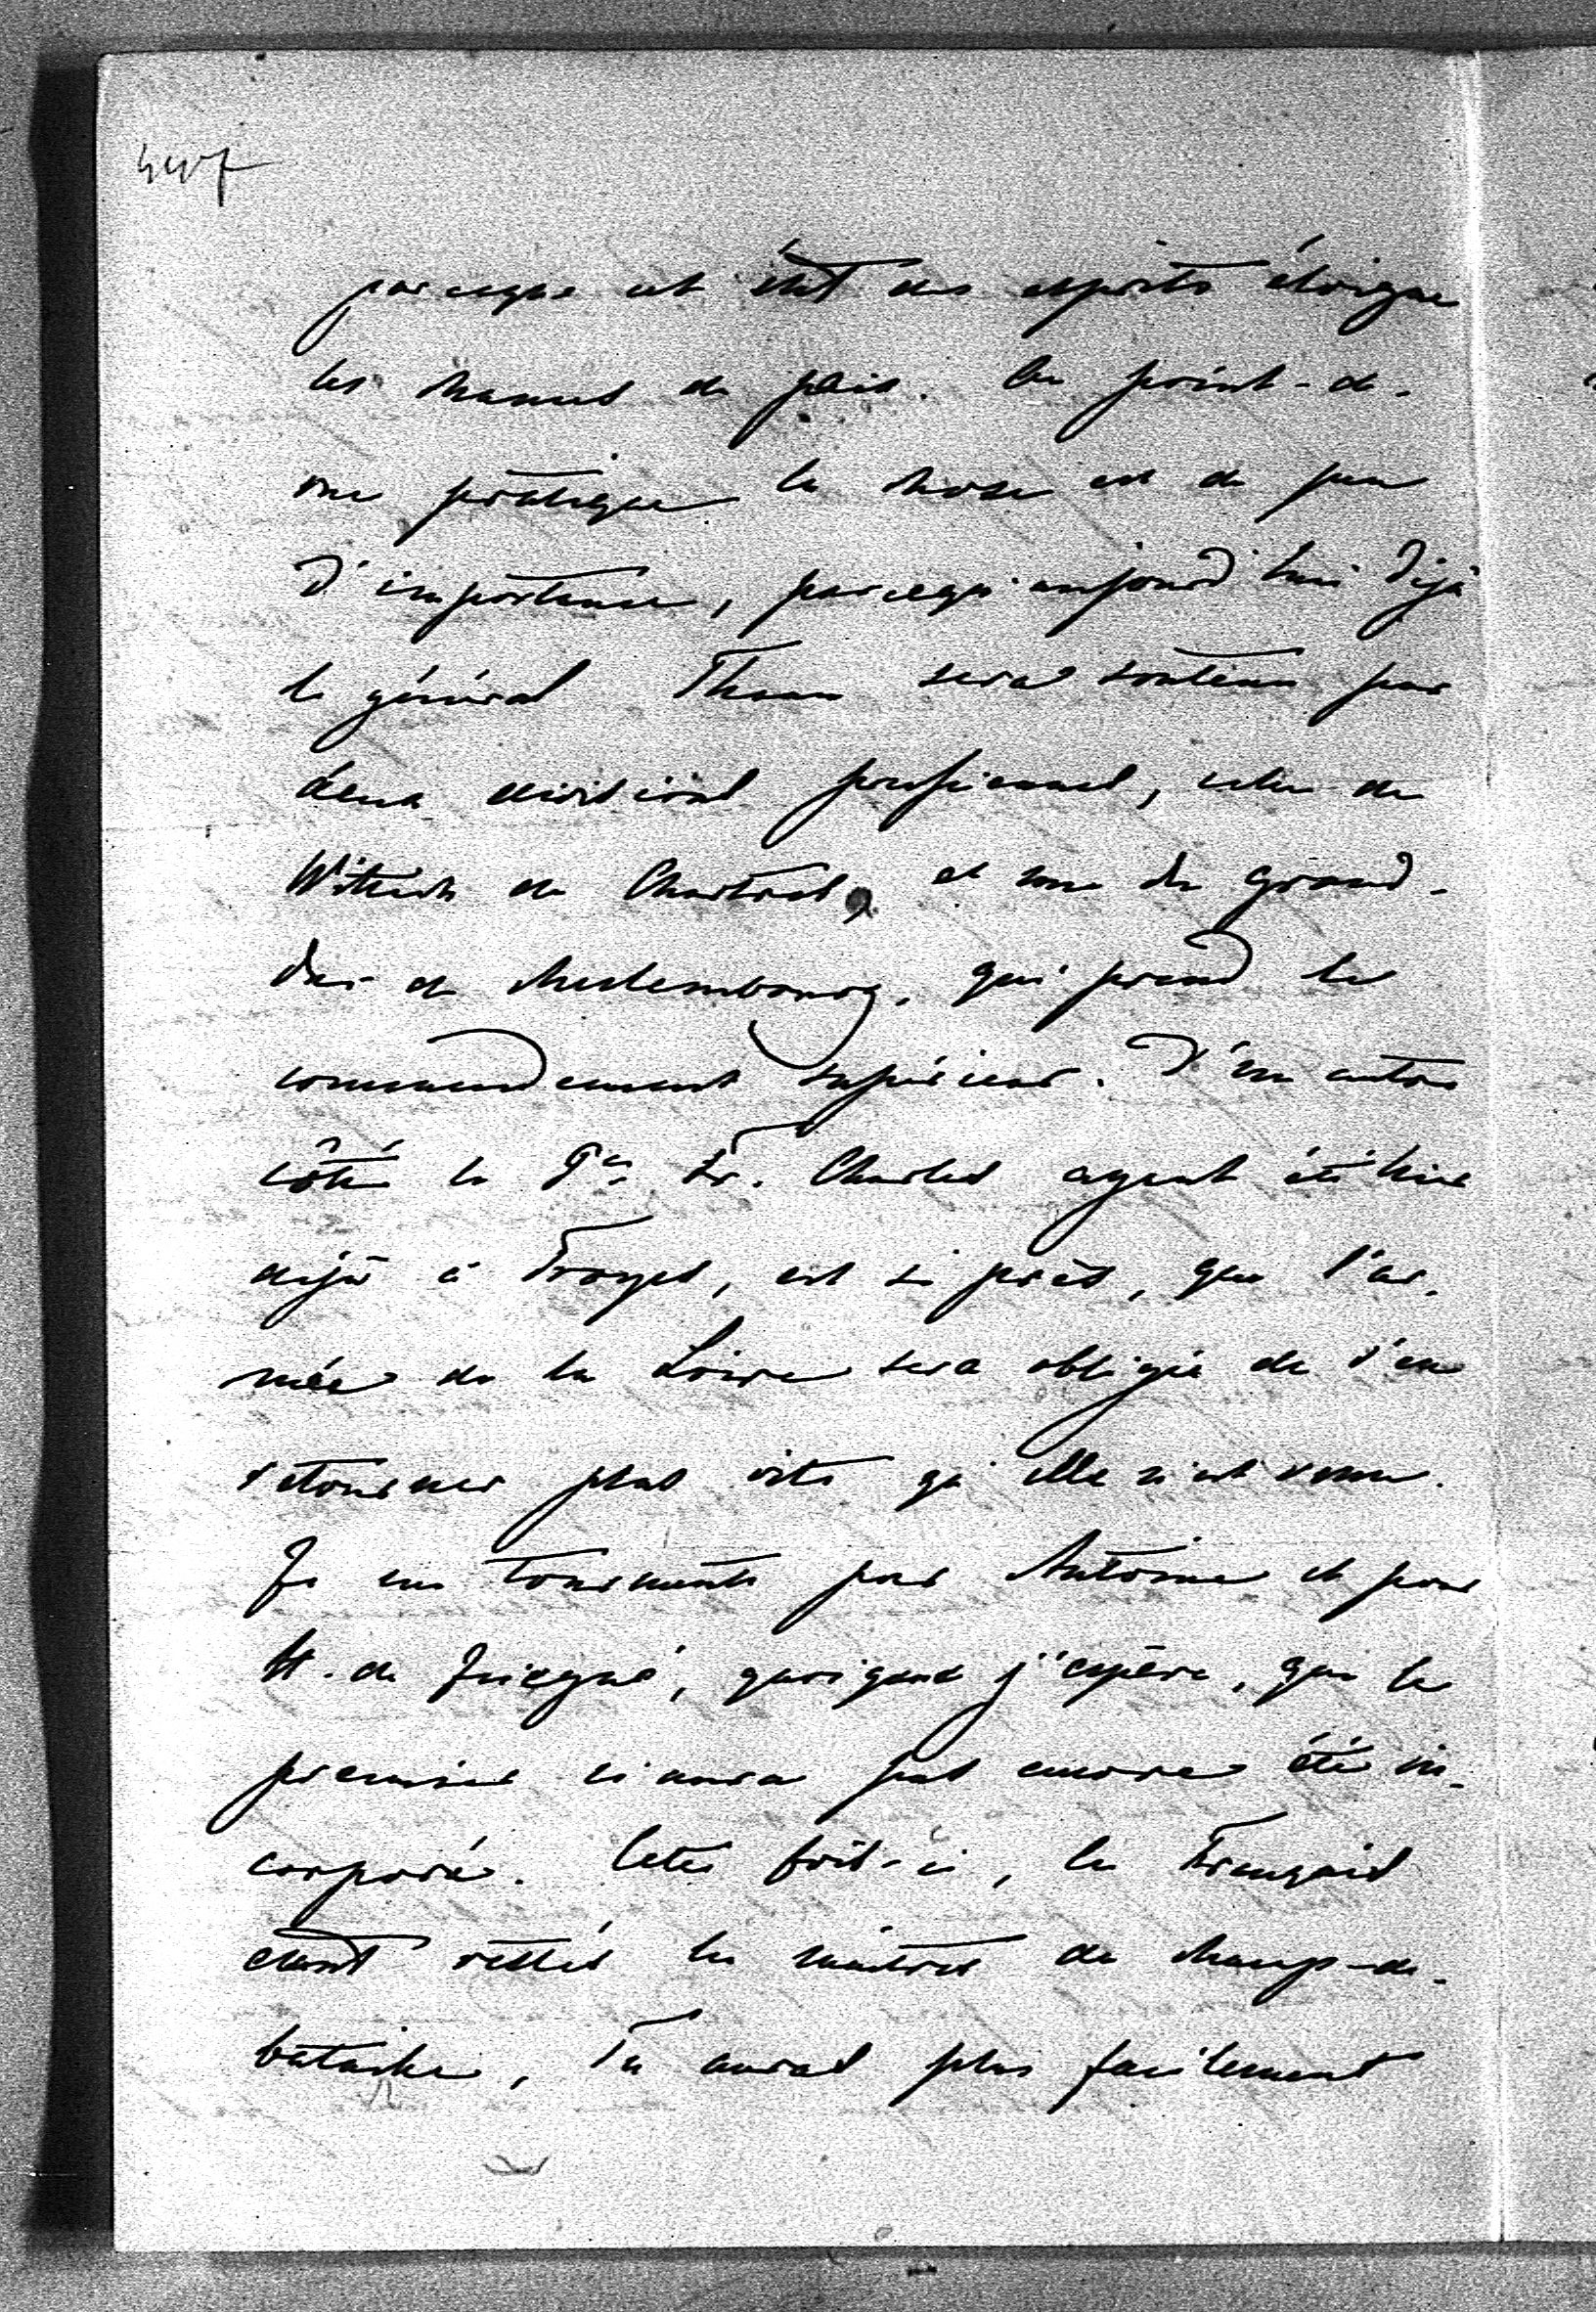 447
parceque cet état des esprits éloigne
les chances de paix. Au point-de-
vue pratique la chose est de peu
d'importance, parcequ'aujourd'hui déjà
le général Thann sera soutenu par
deux divisions prussiennes, celle de
Wittich de Chartres, et une du grand-
duc de Meclembourg, qui prend le
commendement supérieur. D'un autre
côté le Pce Fr. Charles ayant été hier
déjà à Troyes, est si près, que l'ar-
mée de la Loire sera obligée de s'en
retourner plus vite qu'elle n'est venue.
Je me tourmente pour Antoine et pour
M. de quoique j'espère, que le
premier n'aura pas encore été in-
corporé. Cette fois-ci, les Français
étant restés les maîtres du champ-de-
bataille, Tu auras plus facilement